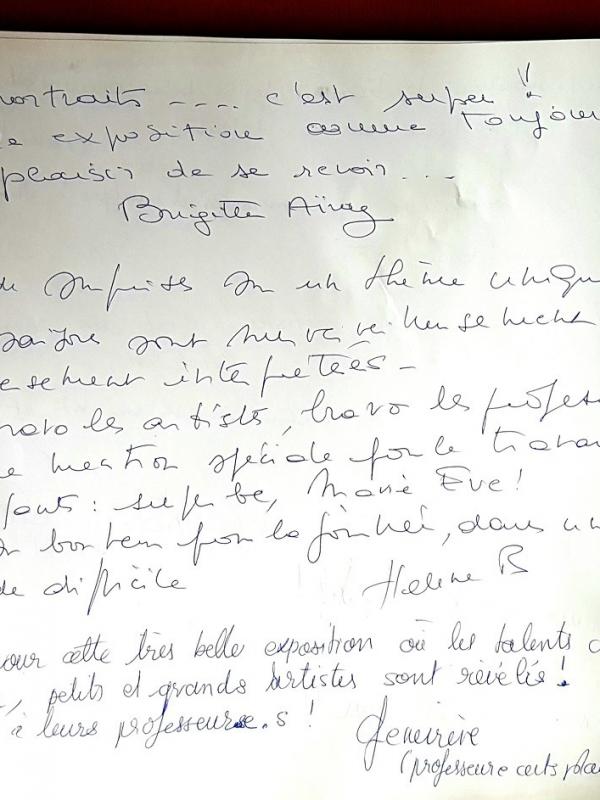 portraits .... c'est super !
exposition comme toujour
plaisir de se revoir...
Brigitte
surprises un thème uniqu
sont merveilleusement
interpretées -
les artistes, bravo les profes
mention spéciale pour le trava
: superbe, Marie Eve !
pour la, dans un
difficile
Helene B
pour cette très belle exposition où les talents d
, petits et grands artistes sont révélés !
à leurs professeure.s !
Geneviève
(professeure arts pla